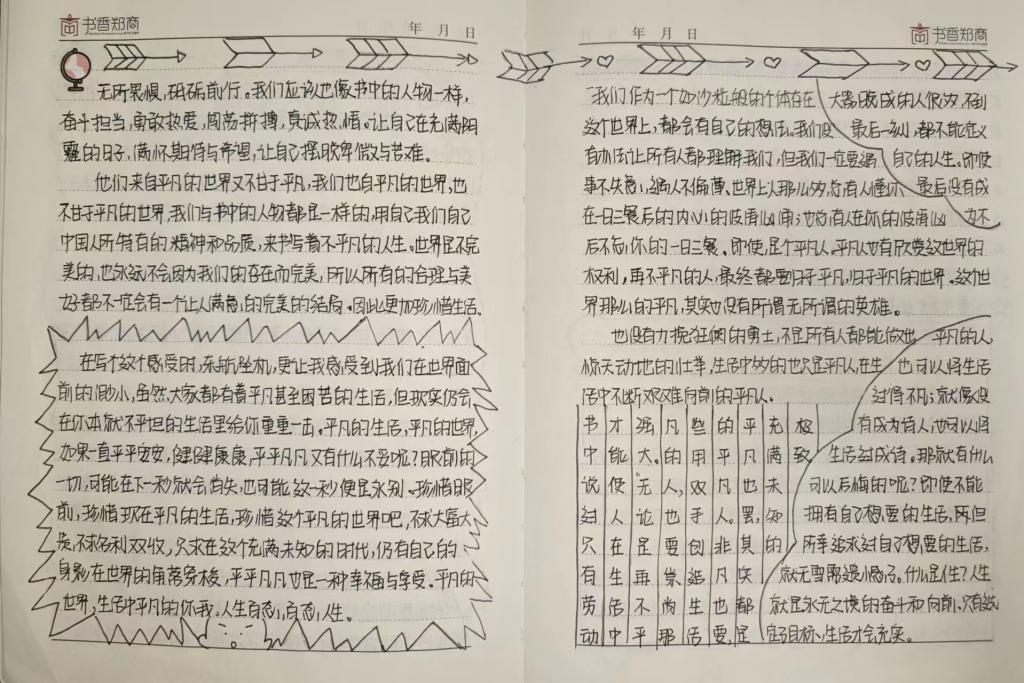 书香郑商 年 月 日
无所畏惧,砥砺前行。我们应该也像书中的人物一样,
奋斗担当,勇敢热爱,闯荡拼搏,真诚热情。让自己在充满阴
霾的日子,满怀期待与希望,让自己摆脱卑微与苦难。
他们来自平凡的世界又不甘于平凡,我们也自平凡的世界,也
不甘于平凡的世界,我们与书中的人物都是一样的,用自己我们自己
中国人所特有的精神和品质,来书写着不平凡的人生。世界是不完
美的,也永远不会因为我们的存在而完美,所以所有的合理与美
好都不一定会有一个让人满意的完美的结局。因此更加珍惜生活。
在写个这个感受时,东航坠机,更让我感受到我们在世界面
前的渺小,虽然大家都有着平凡甚至困苦的生活,但现实仍会
在你本就不平坦的生活里给你重重一击。平凡的生活,平凡的世界,
如果一直平平安安,健健康康,平平凡凡又有什么不妥呢?眼前的
一切,可能在下一秒就会消失,也可能这一秒便是永别。珍惜眼
前,珍惜现在平凡的生活,珍惜这个平凡的世界吧,不求大富大
贵,不求名利双收,只求在这个充满未知的时代,仍有自己的
身影在世界的角落穿梭,平平凡凡也是一种幸福与享受。平凡的
世界,生活中平凡的你我。人生百态,百态人生。
年 月 日 书香郑商
我们作为一个如沙粒般的个体存在
这个世界上,都会有自己的想法。我们没
有办法让所有人都理解我们,但我们一定要遇
事不失意,遇人不偏薄。世界上人那么多,总有人懂你
在一日三餐后的内心的彼情心阔;也总有人在你的彼情心
后不忘你的一日三餐。即使,是个平凡人,平凡人也有欣赏这世界的
权利,再不平凡的人,最终都要归于平凡,归于平凡的世界。这个世
界那么的平凡,其实也没有所谓无所谓的英雄。
也没有力挽狂澜的勇士,不是所有人都能做出
惊天动地的壮举,生活中多的也只是平凡人,在生
活中不断艰难向前的平凡人。
书中说过只有劳动
才能使人在生活中
强大。无论是再不平
凡的人,也要崇尚那
些用双手创造生活
的平凡人。非凡也要
平凡也罢,其实都是
充满未知的
极致
大器晚成的人很多,不到
最后一刻,都不能定义
自己的人生。即使
最后没有成
为不
平凡的人
也可以将生活
过得不凡;就像没
有成为诗人,也可以将
生活过成诗。那就有什么
可以后悔的呢?即使不能
拥有自己想要的生活,所但
所幸追求过自己想要的生活,
就无需
什么是人生?人生
就是永无之境的奋斗和向前,只有选
定了目标,生活才会充实。